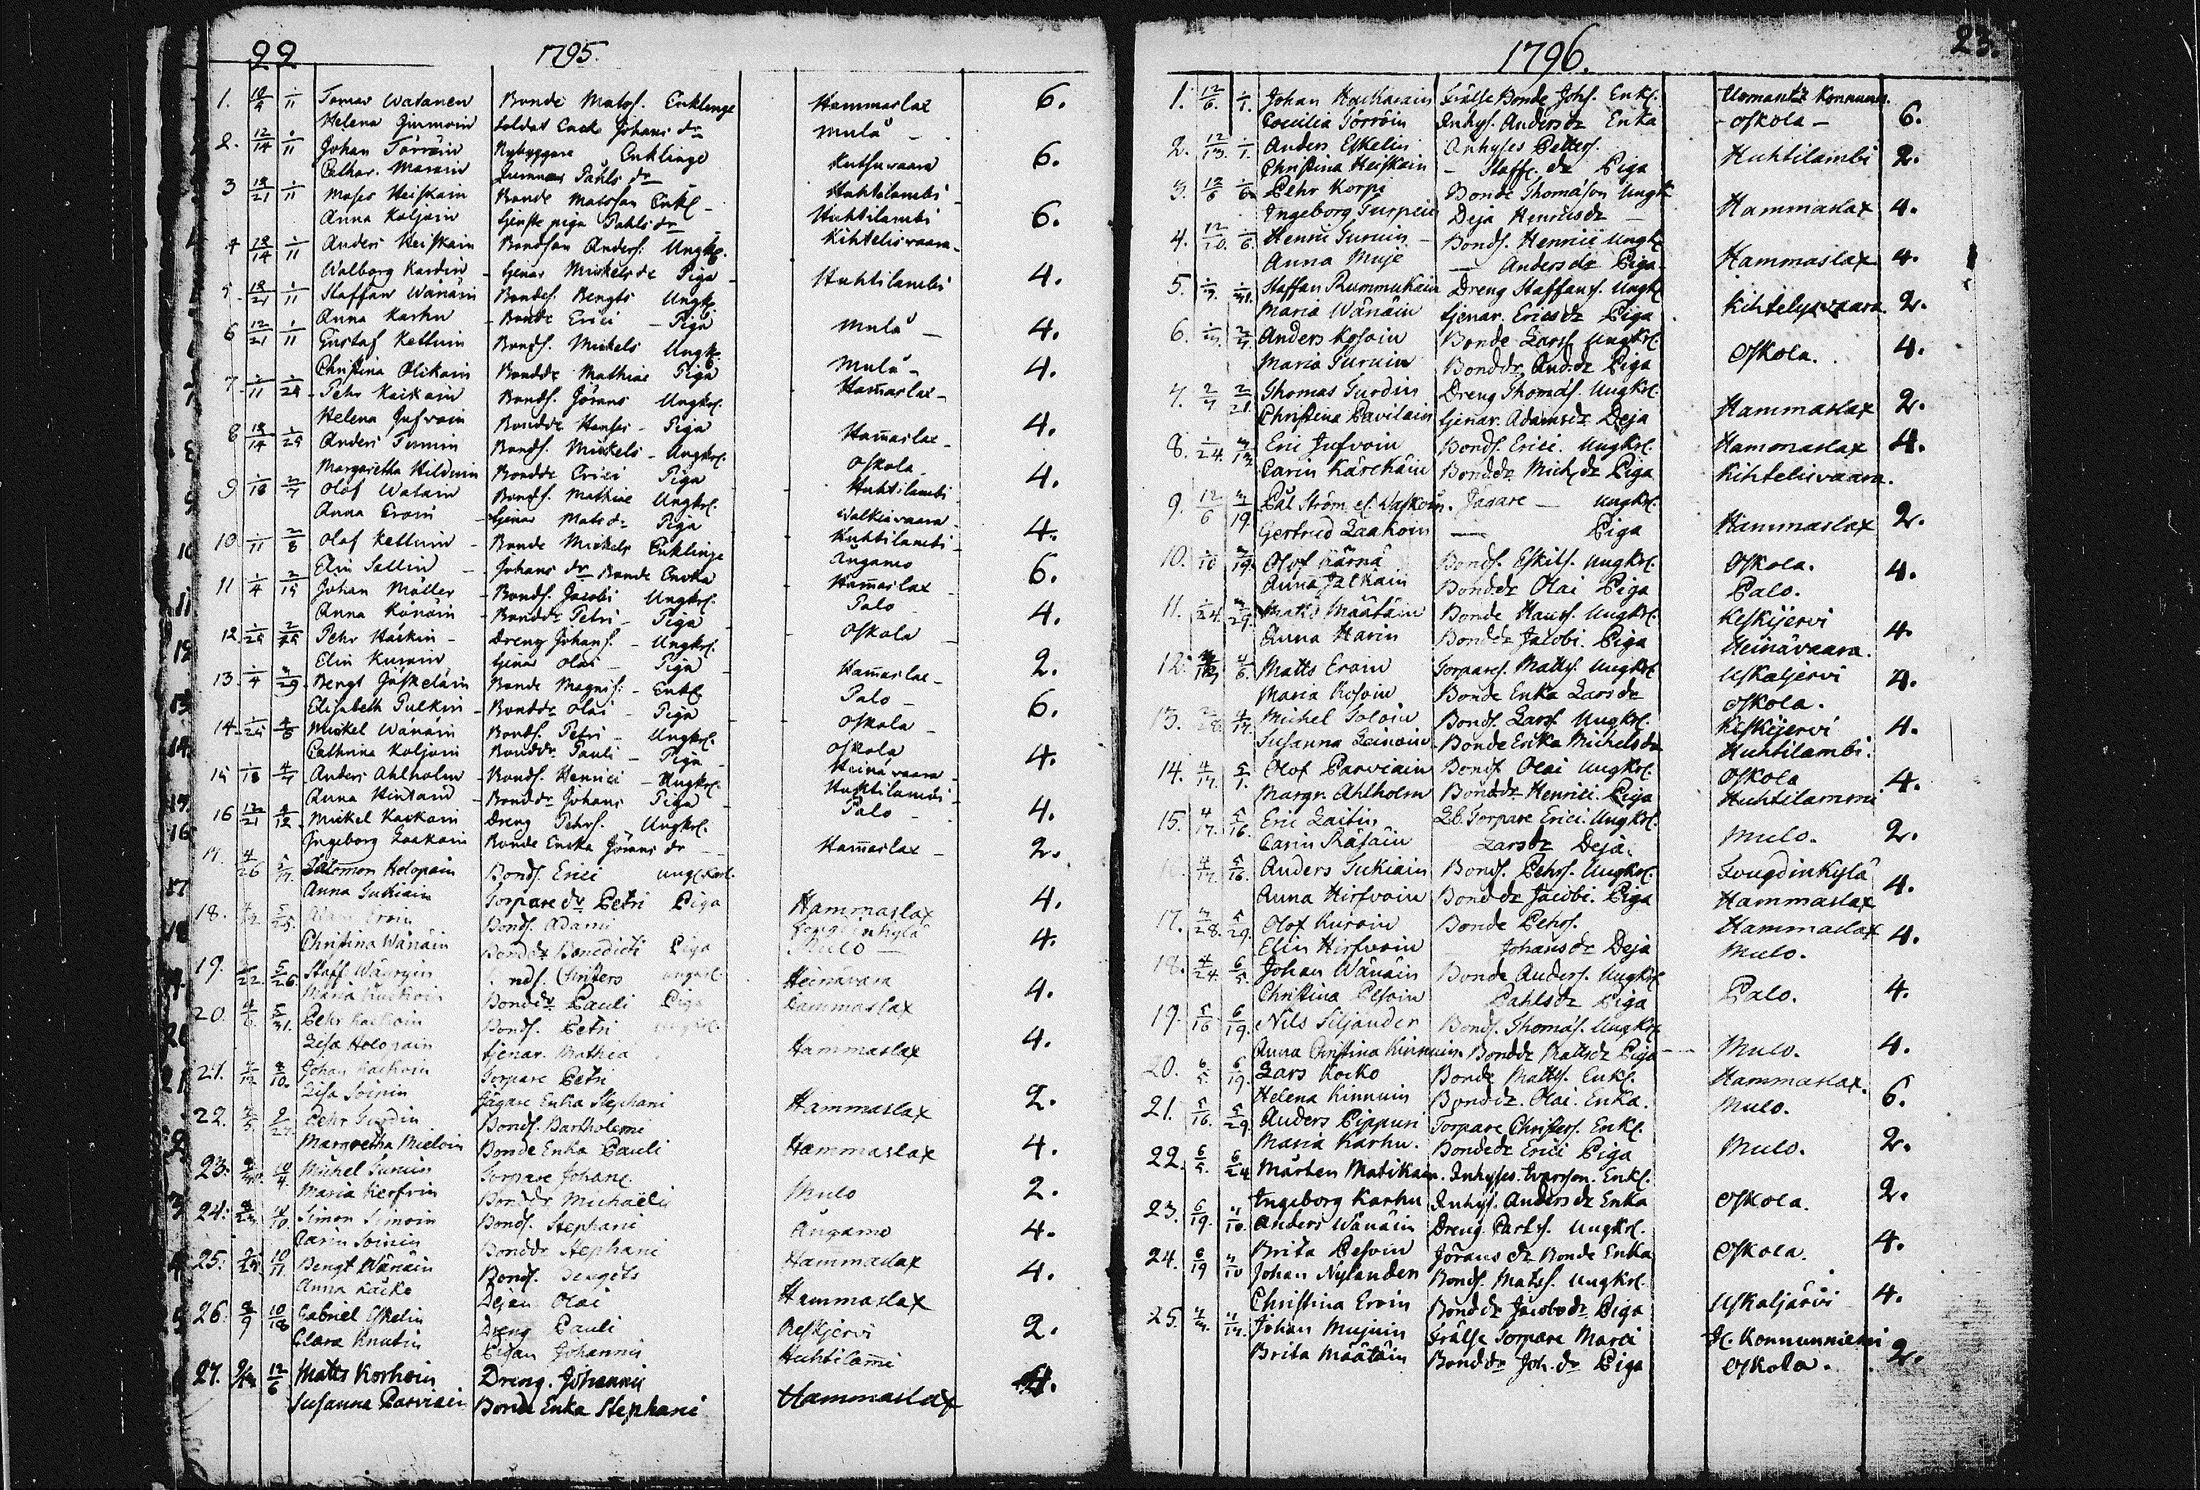 22 1795.
1. 12/9 1/11 Tomas Watanen Bonde Matss. Enklinge Hammaslax 6.
Helena Girmoin Soldat Johans dr Mulå
2. 12/14 1/11 Johan Törröin Nybyggare Enklinge Kutsuvaara 6.
Cathar. Marain Påhls dr Huhtilambi
3 12/21 1/11 Moses Heiskain Bonde Matsson Enkl. Huhtilambi 6.
Anna Koljoin tjenste piga Pahls dr Kihtelisvaara
4 12/14 1/11 Anders Heiskain Bondson Anders. Ungk. Huhtilambi 4.
Walborg Kardin tjenar Mickels dr Piga
5. 12/21 1/11 Staffan Wänäin Bondes. Bengts Ungk. Mulå 4.
Anna Karhu Bonde Erici Piga
6 12/21 1/11 Gustaf Kettuin Bonds. Mickels Ungk. Mulå 4.
Christina Olikain Bondde Mathiae Piga
7 1/11 1/24 Pehr Kaikain Bonds. Jörans Ungkrl. Hamaslax 4.
Helena Jufvoin Bondde Hanses Piga
8 12/14 1/25 Anders Turuin Bonds. Mickels Ungkrl. Hamaslax 4.
Margaretha Hilduin Bondde Erici Piga Oskola
9 1/18 2/7 Olof Watain Bonds. Mathiae Ungkrl. Huhtilambi 4.
Anna Eroin tjenar Mats dr Piga Walkiavaara
10 1/11 2/8 Olof Kettuin Bonde Mickels Enklinge Huhtilambi 6.
Elin Sallin Johans dr Bonde Encka Ångamo
11 1/4 2/15 Johan Möller Bonds. Jacobi Ungkrl. Hamaslax 4.
Anna Könöin Bondde Petri Piga Palo
12 1/25 2/25 Pehr Häikin Dreng Johans. Ungkrl. Oskola 2.
Elin Kuroin tjenar Olai Piga
13. 1/4 3/29. Bengt Jäskeläin Bonde Magnis. Enkl. Hamaslax 6.
Elisabeth Pulkin Bondde Olai Piga Palo
14. 1/25 4/6 Mickel Wänäin Bonds. Petri Ungkrl. Oskola 4.
Cathrina Koljoin Bondde Pauli Piga Oskola
15 1/18 4/7 Anders Ahlholm Bonds. Henrici Ungkrl. Heinävaara 4.
Anna Hintain Bondde Johans Piga Huhtilambi
16 12/21 4/12. Mickel Kaikain Dreng Pehrs. Ungkrl. Palo 2.
Ingeborg Laakoin Bonde Encka Jörans dr
17. 4/26 5/17. Salomon Holopain Bonds. Erici ungkarl. Hamaslax 4.
Anna Sukiain Torpare dr Petri Piga
18. 5/25. Eroin Bonds. Adami Hammaslax 4.
Christina Wänäin Bondde Benedicti Piga Mulo
19. 3/22 5/26. Staff. Bonds. Christers ungkrl. Heinävara 4.
Maria Bondde Pauli Piga Hammaslax
20. 4/6 5/31. Pehr Kackoin Bonds. Petri Hammaslax 4.
Lisa Holopain tjenar. Mathia
21. Johan Kackoin Torpare Petri Hammaslax 2.
Lisa Soinin Jägare Enka Stephani
22. Pehr Turdin Bonds. Bartholemei Hammaslax 4.
Margretha Mieloin Bonde Enka Pauli
23. 10/4. Michel Turuin Torpare Johans. Mulo 2.
Maria Kerfvin Bondde Michaëlis
24. Simon Simoin Bonds. Stephani Ångamo 4.
Carin Soinin Bondde Stephani
25. 10/11 Bengt Wänäin Bonds. Bengts Hammaslax 4.
Anna Käcko Dejan Olai
26. 9/9 10/18 Gabriel Eskelin Dreng Pauli Hammaslax 2.
Clara Knutin Pigan Johannis Keskjervi
27. 12/6 Matts Korhoin Dreng. Johannis Huhtilami 4.
Susanna Parviain Bonde Enka Stephani Hammaslax
1796. 23.
1. 12/6. 1/1. Johan Hacharain Frälse Bonde Johs. Enkl. Ilomants Konnunn. 6.
Coecilia Törröin Inhys. Anders dr Enka Oskola
2. 12/13. 1/1. Anders Eskelin Inhyses Petters. Huhtilambi 2.
Christina Heiskain Staff. dr Piga
3. 12/6 1/6. Pehr Korpi Bonde Thomason Ungk. Hammaslax 4.
Ingeborg Turpein Deja Henricsdr
4. 12/10. 1/6. Henric Turuin Bonds. Henrici Ungk. Hammaslax 4.
Anna Muje Andersdr Piga
5. 1/3. 1/31. Staffan Rummukain Dreng Staffans. Ungk. Kihtelysvaara. 2.
Maria Wänäin tjenar. Ericsdr Piga
6. 1/3. 2/7. Anders Kosoin Bonde Larss. Ungkrl. Oskola. 4.
Maria Turuin Bonddr. And. dr Piga
7. 2/7 2/21. Thomas Turdin Dreng Thomas. Ungkrl. Hammaslax 2.
Christina Pavilain tjenar. Adamsdr Deja
8. 1/24. 3/13. Eric Jufvoin Bonds. Erici. Ungkrl. Hammaslax 4.
Carin Karckäin Bonddr Mich. dr Piga Kihtelisvaara.
9. 12/6 3/19. Pål Ström el. Waskoin. Jägare ungkrl. Hammaslax 2.
Gertrud Laakoin Piga
10. 1/10 3/19. Olof Kärnä Bonds. Eskils. Ungkrl. Oskola. 4.
Anna Jalkain Bonddr Olai Piga Palo.
11. 1/24. 3/29. Matts Määtäin Bonde Hans. Ungkrl. Keskijervi 4.
Anna Harin Bonddr Jacobi. Piga Heinävaara.
12. 4/6. Matts Eroin Torpares. Matts. Ungkrl. Uskaljervi 4.
Maria Kosoin Bonde Enka Larsdr Oskola.
13. 3/28. 4/17. Michel Soloin Bonds. Lars. Ungkrl. Keskijervi 4.
Susanna Leinoin Bonde Enka Michelsdr Huhtilambi.
14. 4/17. 5/1. Olof Parviain Bonds. Olai Ungkrl. Oskola 4.
Margr. Ahlholm Bonddr Henrici. Piga Huhtilammi
15. 4/17. 5/16. Eric Laitin Lb. Torpare Erici. Ungkrl. Mulo. 2.
Carin Räsäin Larsdr Deja.
4/17. 5/16. Anders Sukiain Bonds. Pehrs. Ungkrl. Tougdinkylä 4.
Anna Hirfvoin Bonddr Jacobi. Piga Hammaslax
17. 3/28. 5/29. Olof Kuroin Bonde Pehrs. Hammaslax 4.
Elin Hirfvoin Johansdr Deja Mulo.
18. 4/24. 6/5. Johan Wänäin Bonde Anders. Ungkrl. Palo. 4.
Christina Pesoin Pahlsdr Piga
19. 5/16 6/19. Nils Siljander Bonds. Thomas. Ungkrl. Mulo. 4.
Anna Christina Kinnuin. Bonddr Mattsdr Piga Hammaslax.
20. 6/5. 6/19. Lars Kocko Bonde Matts. Enkl. Mulo. 6.
Helena Kinnuin Bonddr. Olai. Enka.
21. 5/16. 5/29 Anders Pippuri Torpare Christers. Enkl. Mulo. 2.
Maria Karhu. Bonddr Erici Piga
22. 6/5. 6/24 Mårten Matikain. Inhyses. Enkl. Oskola. 2.
Ingeborg Karhu Inhys. Andersdr Enka
23. 6/19. 11/10. Anders Wänäin Dreng Ungkrl. Oskola. 4.
Brita Pesoin Jöransdr Bonde Enka
24. 6/19 11/10 Johan Nylander Bonds. Matss. Ungkrl. Uskaljärvi 4.
Christina Eroin Bonddr Jacobsdr Piga
25. Johan Mujuin Frälse Torpare Marci Il. Konnunniemi 2.
Brita Määtäin Bonddr Joh. dr Piga Oskola.